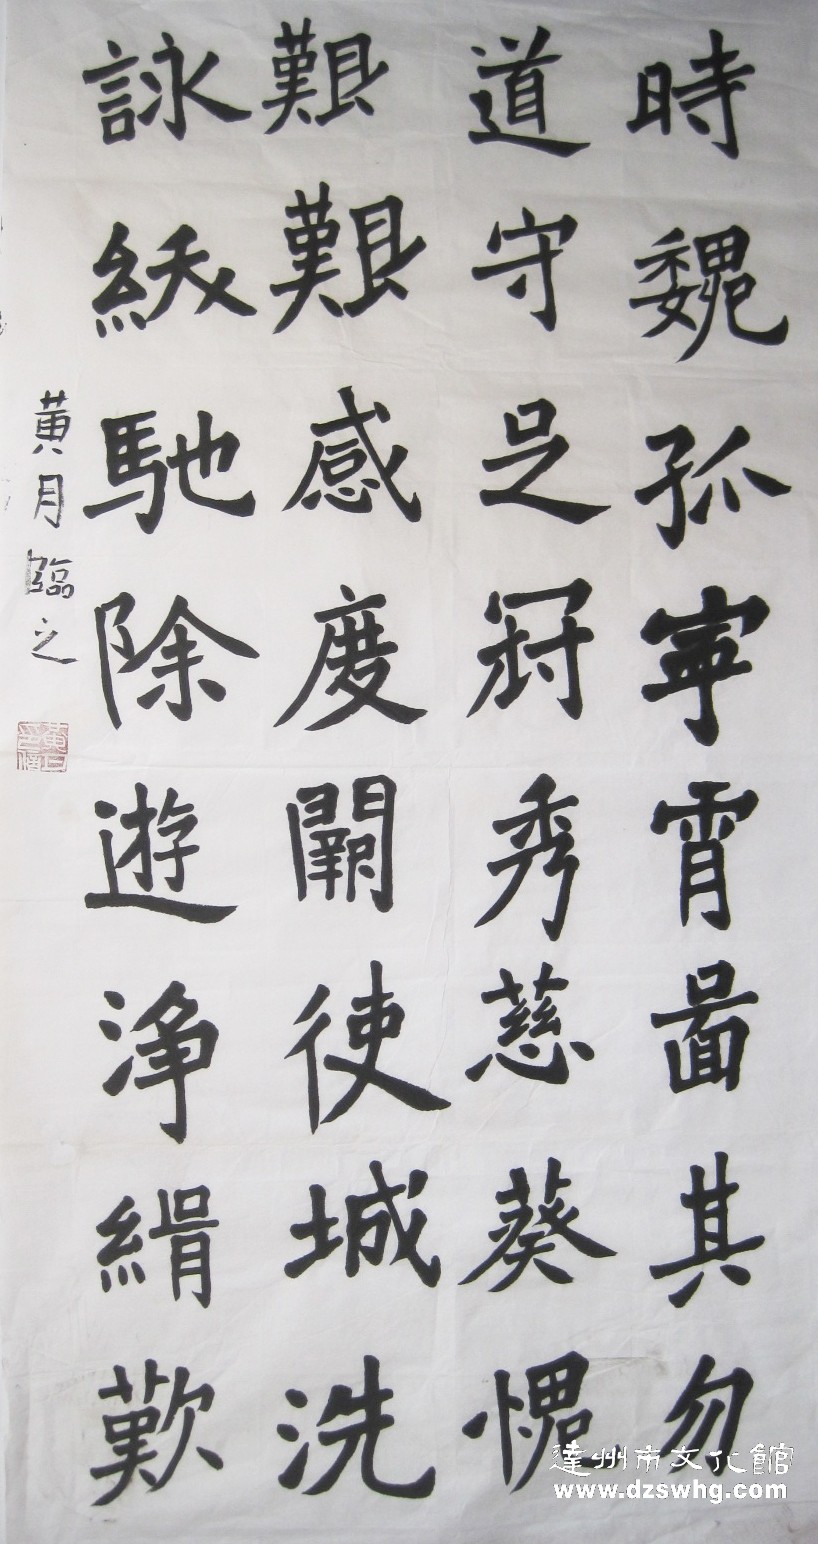 時魏孤寧霄啚其勿
道守足冠秀慈葵愧
艱艱感度闕使城洗
詠馳除遊淨緝歎
黃月臨之
達州市文化館
www.dzswhg.com